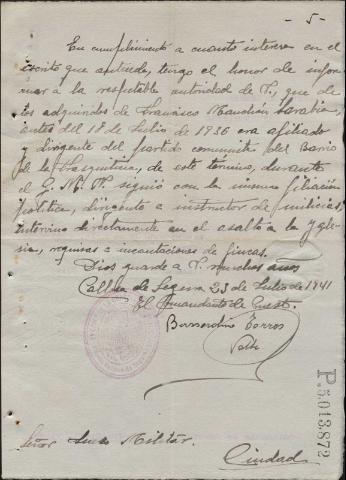 - 5 -
En cumplimiento a cuanto interesa en el
escrito que antecede, tengo el honor de infor-
mar a la respetable autoridad de V, que de
tos adquiridos de Francisco Sarabia,
antes del 18 de Julio de 1936 era afiliado
y dirigente del partido comunista del Barrio
de la, de este término, durante
el G. M. N. siguió con la misma filiación
política, dirigente e instructor de milicias,
intervino directamente en el asalto a la Ygle-
sia, requisas e incautaciones de fincas.
Dios guarde a V. muchos años
Callosa de Segura 23 de Julio de 1941
El Comandante de Puesto
Bernardino Torres
P.5.013.872
Señor Juez Militar.
Ciudad